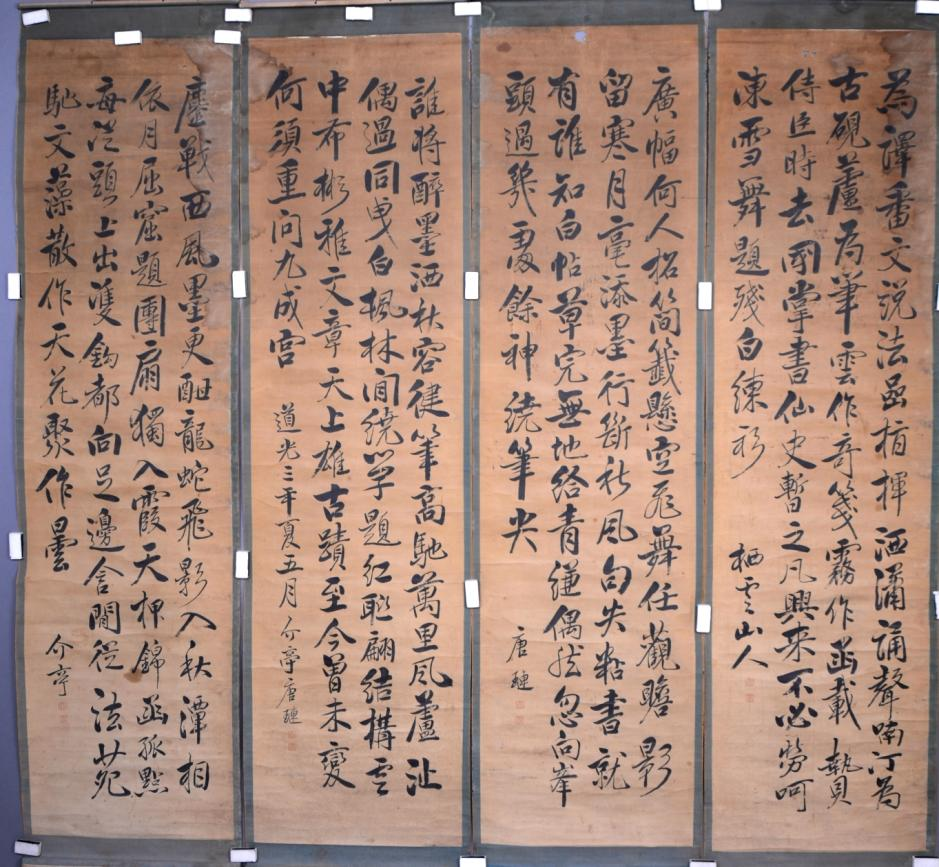 為譯番文説法函指揮洒滿誦聲喃汀為
古硯蘆為筆雲作奇箋霧作函載贄員
侍臣時去國掌書仙史暫之凡興来不必勞呵
凍雪舞題殘白練衫
栖雲山人
廣幅何人招簡籤懸空飛舞任觀瞻影
留寒月毫添墨行斷秋風句失粘書就
有誰知白帖草完無地給青縑偶然忽向峯
頭過幾處餘神繞筆尖
唐璉
誰将醉墨洒秋容健筆高馳萬里風蘆沚
偶過同曳白楓林間繞學題紅聯翩結構雲
中布彬雅文章天上雄古蹟至今曾未變
何須重問九成宫
道光三年夏五月介亭唐璉
鏖戰西風墨更酣龍蛇飛影入秋潭相
依月屈窟題團扇獨入霞天柙錦函孤點
每從頭上出雙鈎都向足邊含閒從法苑
馳文藻散作天花聚作曇
介亭